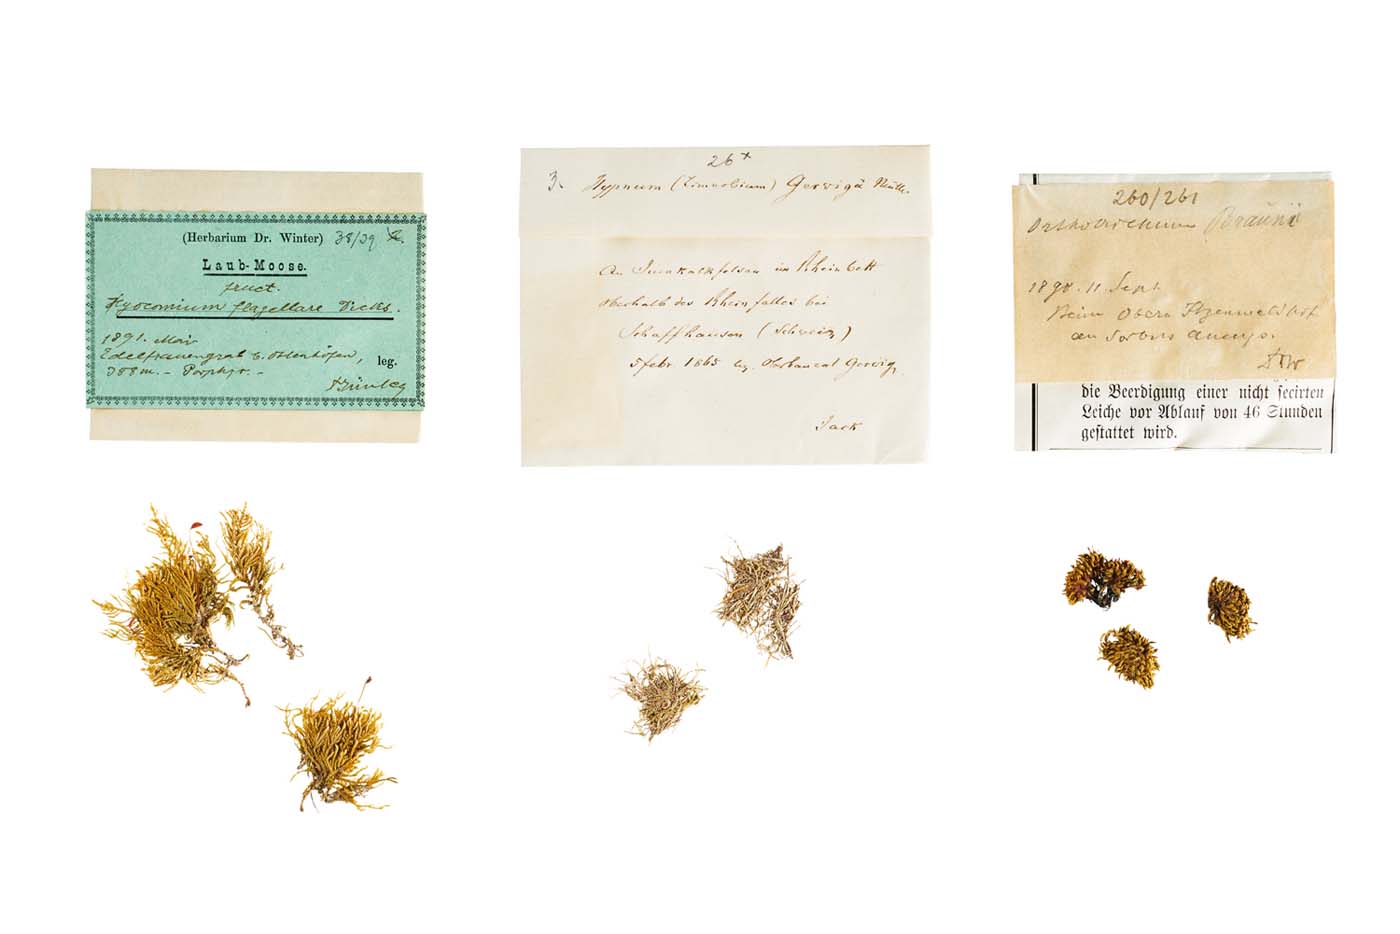 (Herbarium Dr. Winter) 38/39
Laub-Moose.
fruct.
Hyocomium flagellare Dicks.
1891. Mai
Edelfrauengrab b. Ottenhöfen,
388 m. - Porphyr. -
leg.
26+
3. Hypnum (Limnobium) Gerwigii Müll.
An Jurakalkfelsen im Rheinbett
oberhalb des Rheinfalles bei
Schaffhausen (Schweiz)
5 febr 1865 leg. Oberbaurat Gerwig.
Jack
260/261
Orthotrichum Braunii
1890. 11 Sept.
Beim Obern
an Sorbus aucup.
die Beerdigung einer nicht secirten
Leiche vor Ablauf von 46 Stunden
gestattet wird.